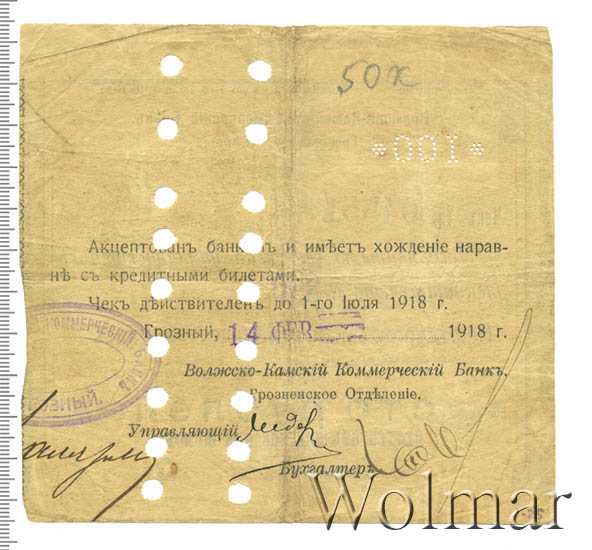 50к
*001*
Акцептованъ банкомъ и имѣетъ хожденіе нарав-
нѣ съ кредитными билетами.
Чекъ дѣйствителенъ до 1-го Іюля 1918 г.
Грозный, 14 ФЕВ 1918 г.
КОММЕРЧЕСКІЙ БАНКЪ
Волжско-Камскій Коммерческій Банкъ,
Грозненское Отдѣленіе.
Управляющій
Бухгалтеръ
Wolmar